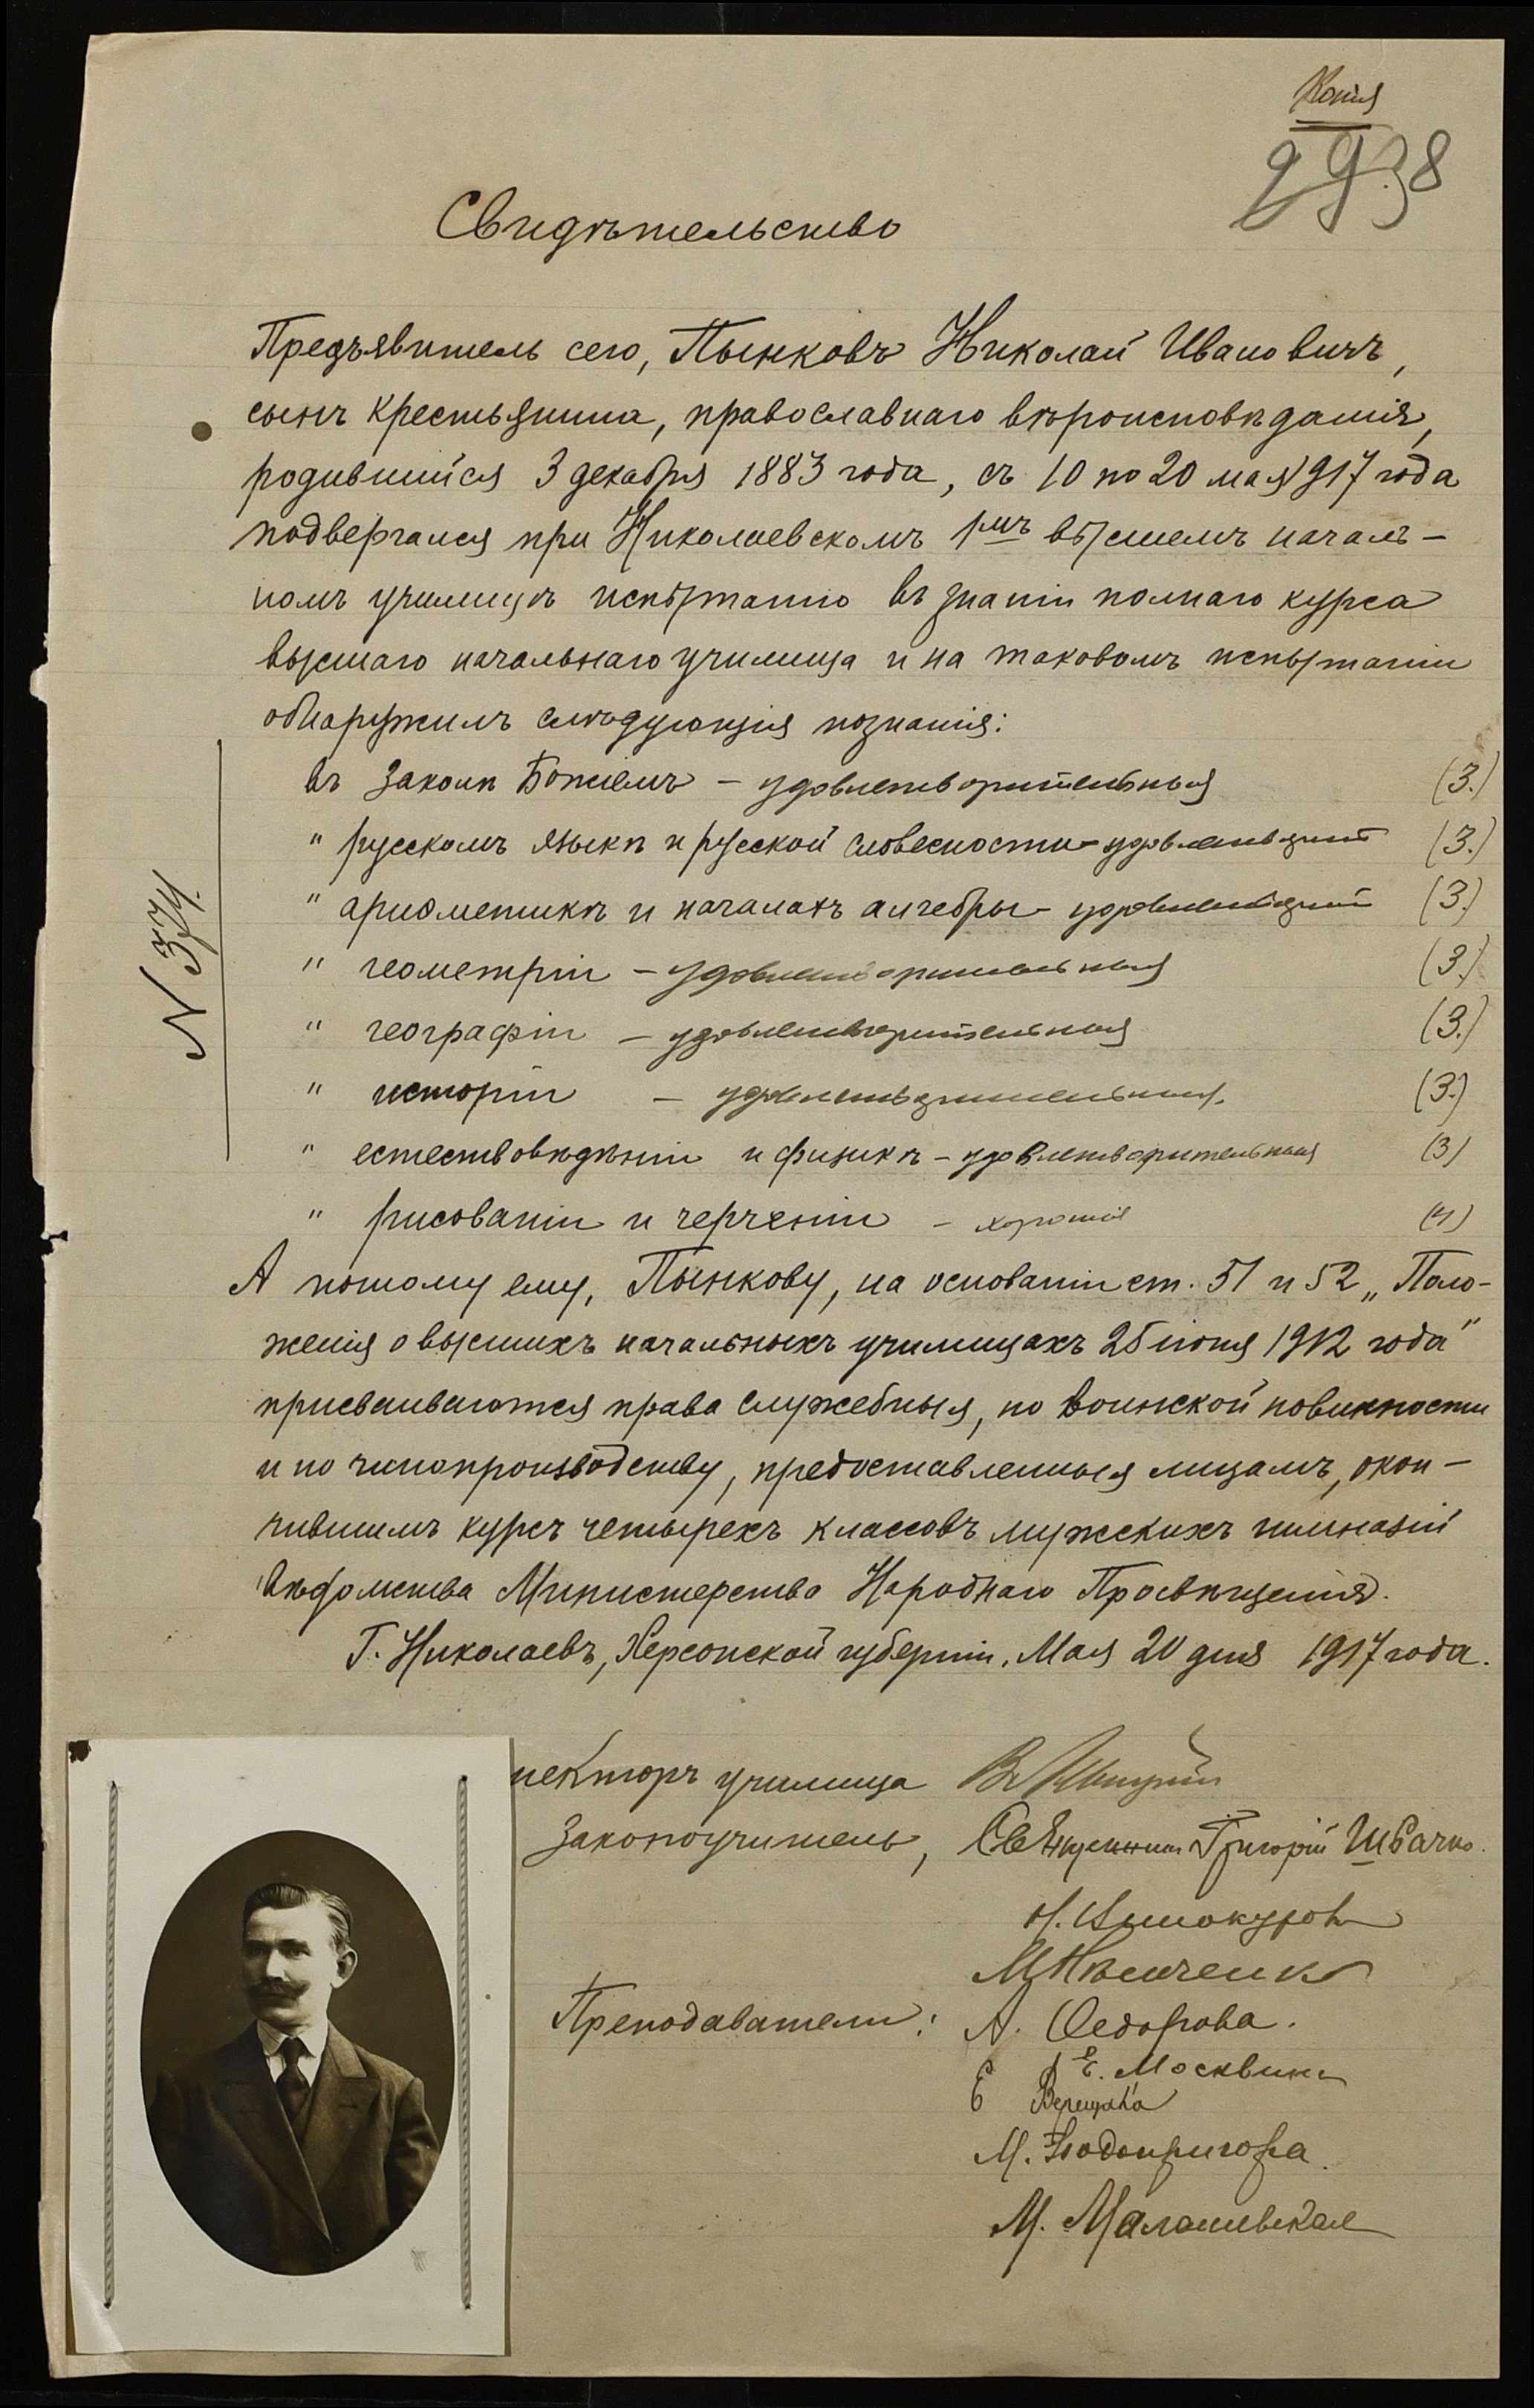 Копія
38
Свидѣтельство
Предъявитель сего, Пынковъ Николай Ивановичъ,
сынъ крестьянина, православнаго вѣроисповѣданія,
родившійся 3 декабря 1883 года, съ 10 по 20 мая 1917 года
подвергался при Николаевскомъ 1мъ высшемъ началь-
номъ училищѣ испытанію въ знаніи полнаго курса
высшаго начальнаго училища и на таковомъ испытаніи
обнаружилъ слѣдующія познанія:
въ Законѣ Божіемъ – удовлетворительныя (3.)
" русскомъ языкѣ и русской словесности – (3.)
" ариѳметикѣ и началахъ алгебры – (3.)
" геометріи – удовлетворительныя (3.)
" географіи – удовлетворительныя (3.)
" исторіи – удовлетворительныя. (3.)
" естествовѣдѣніи и физикѣ – удовлетворительныя (3)
" рисованіи и черченіи – хорошія (4)
N 374.
А потому ему, Пынкову, на основаніи ст. 51 и 52 „Поло-
женія о высшихъ начальныхъ училищахъ 25 іюня 1912 года"
присваиваются права служебныя, по воинской повинности
и по чинопроизводству, предоставленныя лицамъ, окон-
чившимъ курсъ четырехъ классовъ мужскихъ гимназій
вѣдомства Министерства Народнаго Просвѣщенія.
Г. Николаевъ, Херсонской губерніи. Мая 20 дня 1917 года.
пекторъ училища
Законоучитель, Священникъ Григорій Швачко.
Н. Винокуровъ
М. Ильченко
Преподаватели: А. Ѳедорова.
Е. Москвина
Е Верещака
М. Подопригора.
М. Малашевская